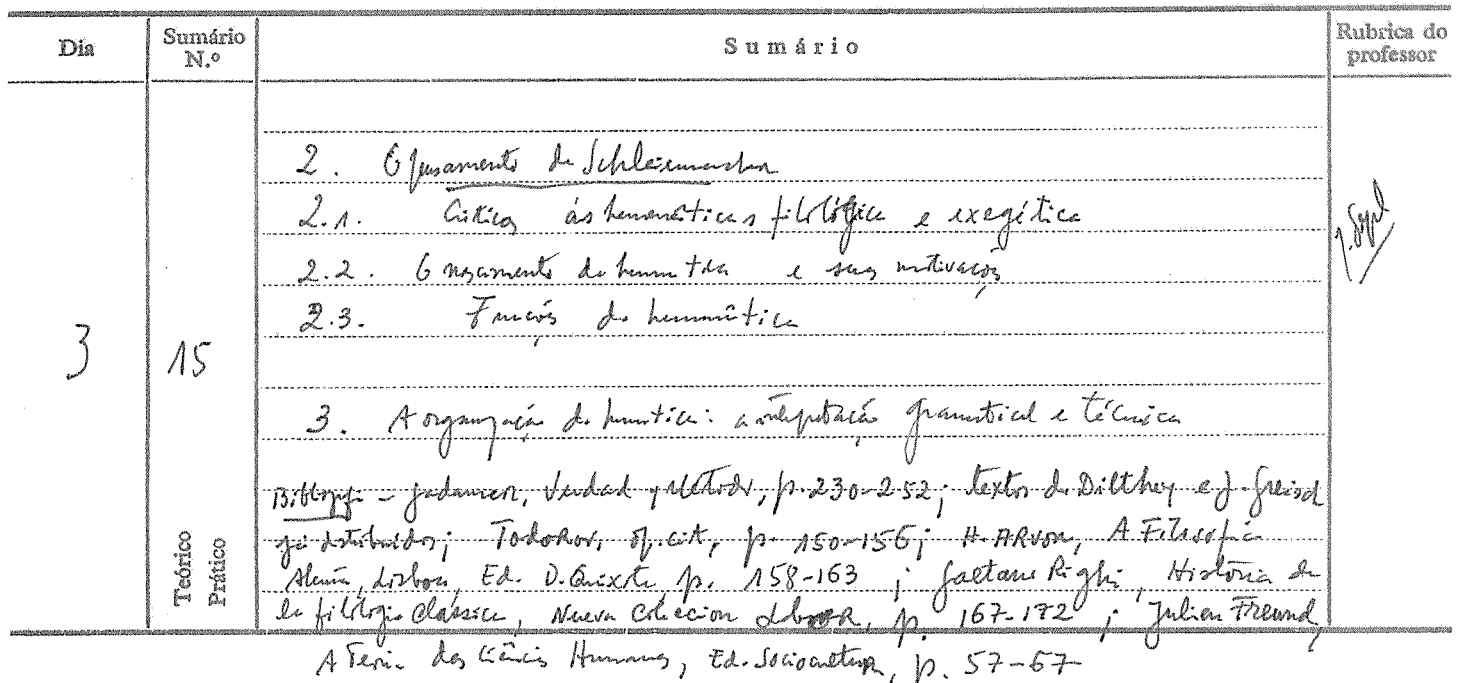 Dia
Sumário N.º
Sumário
Rubrica do professor
3
15
Teórico
Prático
2. O pensamento de Schleiermacher
2.1. Críticas às hermenêuticas filológica e exegética
2.2. O nascimento da hermtca e suas motivações
2.3. Funções da hermenêutica
3. A organização da hermtica: a interpretação gramatical e técnica
Bibliografia - Gadamer, Verdad y Método, p. 230-252; textos de Dilthey e J. Greisch
já distribuídos; Todorov, op. cit., p. 150-156; H. ARVON, A Filosofia
Alemã, Lisboa, Ed. D. Quixote, p. 158-163; Gaetano Righi, História de
la filología Clássica, Nueva Colección Labor, p. 167-172; Julien Freund,
A Teoria das Ciências Humanas, Ed. Sociocultur, p. 57-67